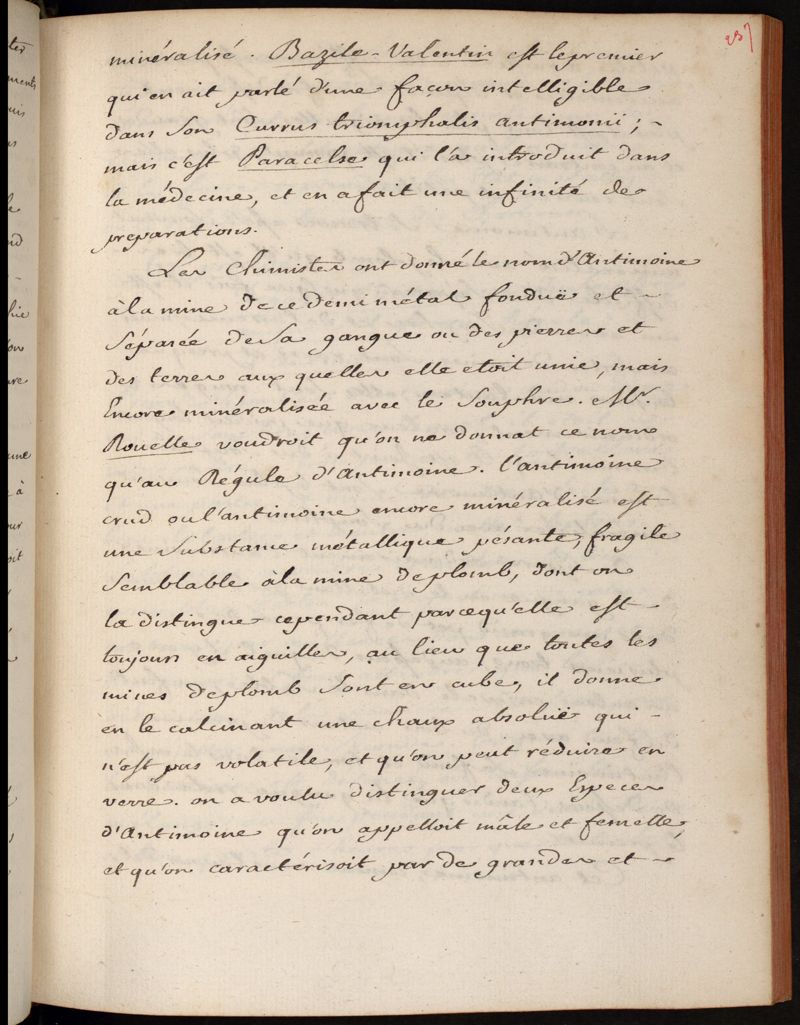 237
minéralisé. Bazile-Valentin est le premier
qui en ait parlé d'une façon intelligible
dans son Currus triomphalis antimonii ; -
mais c'est Paracelse qui l'a introduit dans
la médecine, et en a fait une infinité de
preparations.
Les Chimistes ont donné le nom d'Antimoine
à la mine de ce demi métal fonduë et -
séparée de sa gangue ou des pierres et
des terres aux quelles elle etoit unie, mais
Encore minéralisée avec le Souphre. Mr.
Rouelle voudroit qu'on ne donnat ce nom
qu'au Régule d'Antimoine. l'antimoine
crud ou l'antimoine encore minéralisé est
une Substance métallique pésante, fragile
Semblable à la mine de plomb, dont on
la distingue cependant parcequ'elle est -
toujours en aiguilles, au lieu que toutes les
mines de plomb sont en cube, il donne
en le calcinant une chaux absoluë qui -
n'est pas volatile, et qu'on peut réduire en
verre. on a voulu distinguer deux Especes
d'Antimoine qu'on appelloit mâle et femelle,
et qu'on caractérisoit par de grandes et -